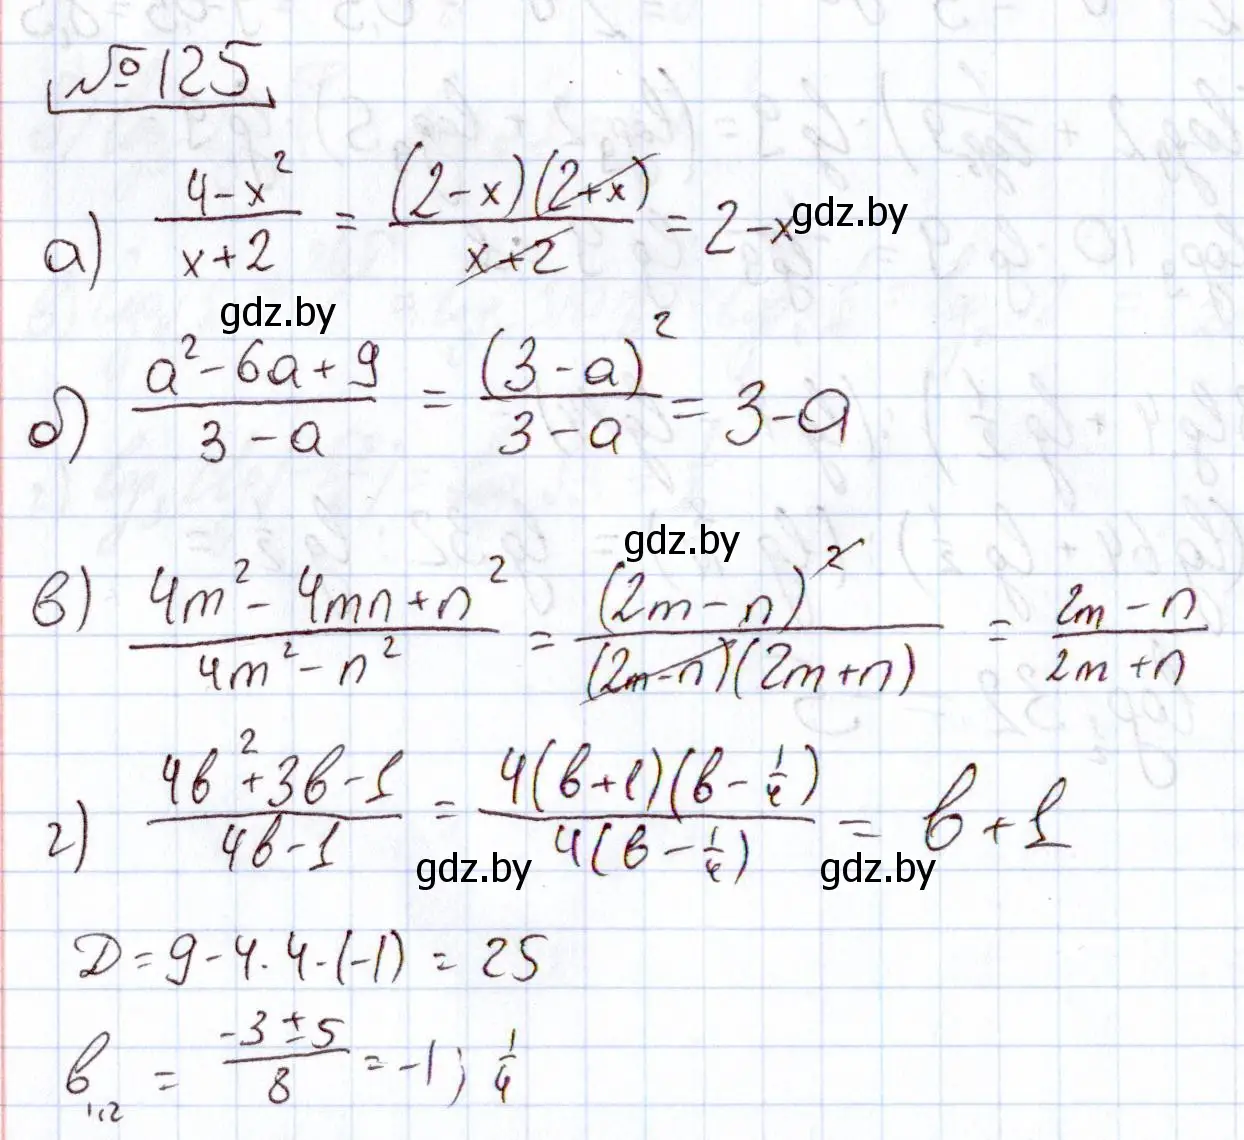 №125
а) (4-x²)/(x+2) = ((2-x)(2+x))/(x+2) = 2-x
gdz.by
gdz.by
б) (a²-6a+9)/(3-a) = (3-a)²/(3-a) = 3-a
gdz.by
в) (4m²-4mn+n²)/(4m²-n²) = (2m-n)²/((2m-n)(2m+n)) = (2m-n)/(2m+n)
г) (4b²+3b-1)/(4b-1) = (4(b+1)(b-1/4))/(4(b-1/4)) = b+1
gdz.by gdz.by
D=9-4·4·(-1)=25
b₁,₂ = (-3±5)/8 = -1; 1/4